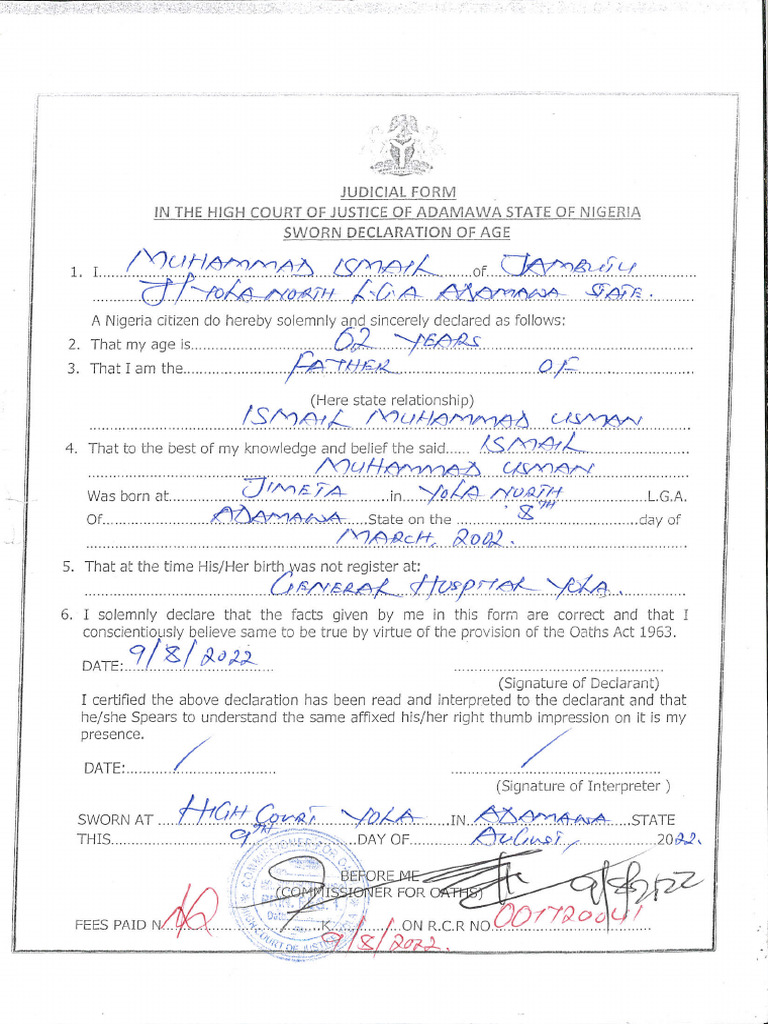 JUDICIAL FORM
IN THE HIGH COURT OF JUSTICE OF ADAMAWA STATE OF NIGERIA
SWORN DECLARATION OF AGE
1. I MUHAMMAD ISMAIL of JAMBUTU
J/ YOLA NORTH L.G.A ADAMAWA STATE.
A Nigeria citizen do hereby solemnly and sincerely declared as follows:
2. That my age is 62 YEARS
3. That I am the FATHER OF
(Here state relationship)
ISMAIL MUHAMMAD USMAN
4. That to the best of my knowledge and belief the said ISMAIL
MUHAMMAD USMAN
Was born at JIMETA in YOLA NORTH L.G.A.
Of ADAMAWA State on the 8TH day of
MARCH, 2002.
5. That at the time His/Her birth was not register at:
GENERAL HOSPITAL YOLA.
6. I solemnly declare that the facts given by me in this form are correct and that I
conscientiously believe same to be true by virtue of the provision of the Oaths Act 1963.
DATE: 9/8/2022
(Signature of Declarant)
I certified the above declaration has been read and interpreted to the declarant and that
he/she Spears to understand the same affixed his/her right thumb impression on it is my
presence.
DATE: /
/
(Signature of Interpreter )
SWORN AT HIGH COURT YOLA IN ADAMAWA STATE
THIS 9TH DAY OF AUGUST, 2022.
BEFORE ME
(COMMISSIONER FOR OATHS) 9/8/2022
FEES PAID N K ON R.C.R NO 001720041
9/8/2022.
COMMISSIONER FOR OATHS
HIGH COURT OF JUSTICE YOLA